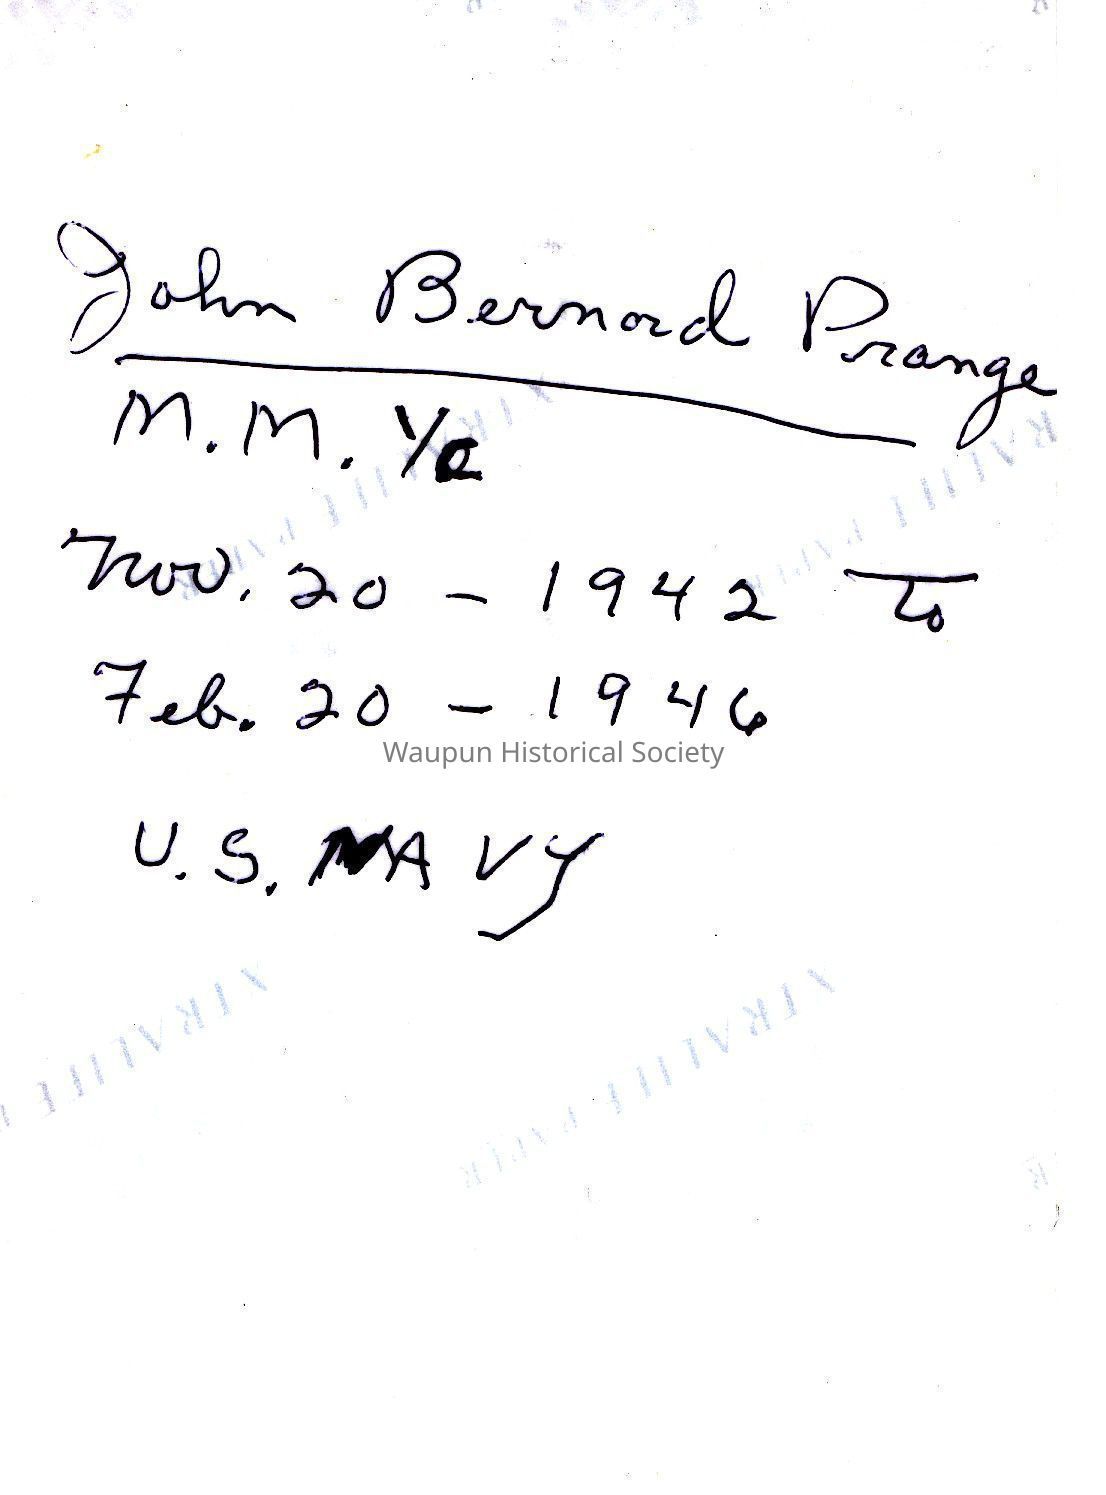 John Bernard Prange
M.M. 1/c
Nov. 20 - 1942 to
Feb. 20 - 1946
Waupun Historical Society
U.S. NAVY